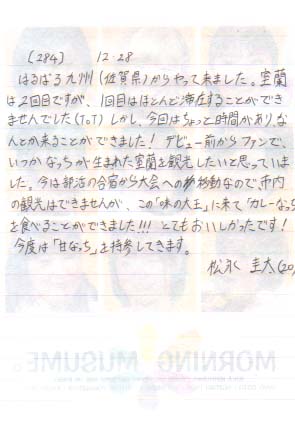 [284] 12.28
はるばる九州(佐賀県)からやって来ました。室蘭
は2回目ですが、1回目はほとんど滞在することができ
ませんでした(ToT) しかし、今回はちょっと時間があり、な
んとか来ることができました! デビュー前からファンで、
いつかなっちが生まれた室蘭を観光したいと思っていま
した。今は部活の合宿から大会への移動なので、市内
の観光はできませんが、この「味の大王」に来て「カレーなっち」
を食べることができました!!! とてもおいしかったです!
今度は「甘なっち」を持参してきます。
松永 圭太(20)
MORNING MUSUME。